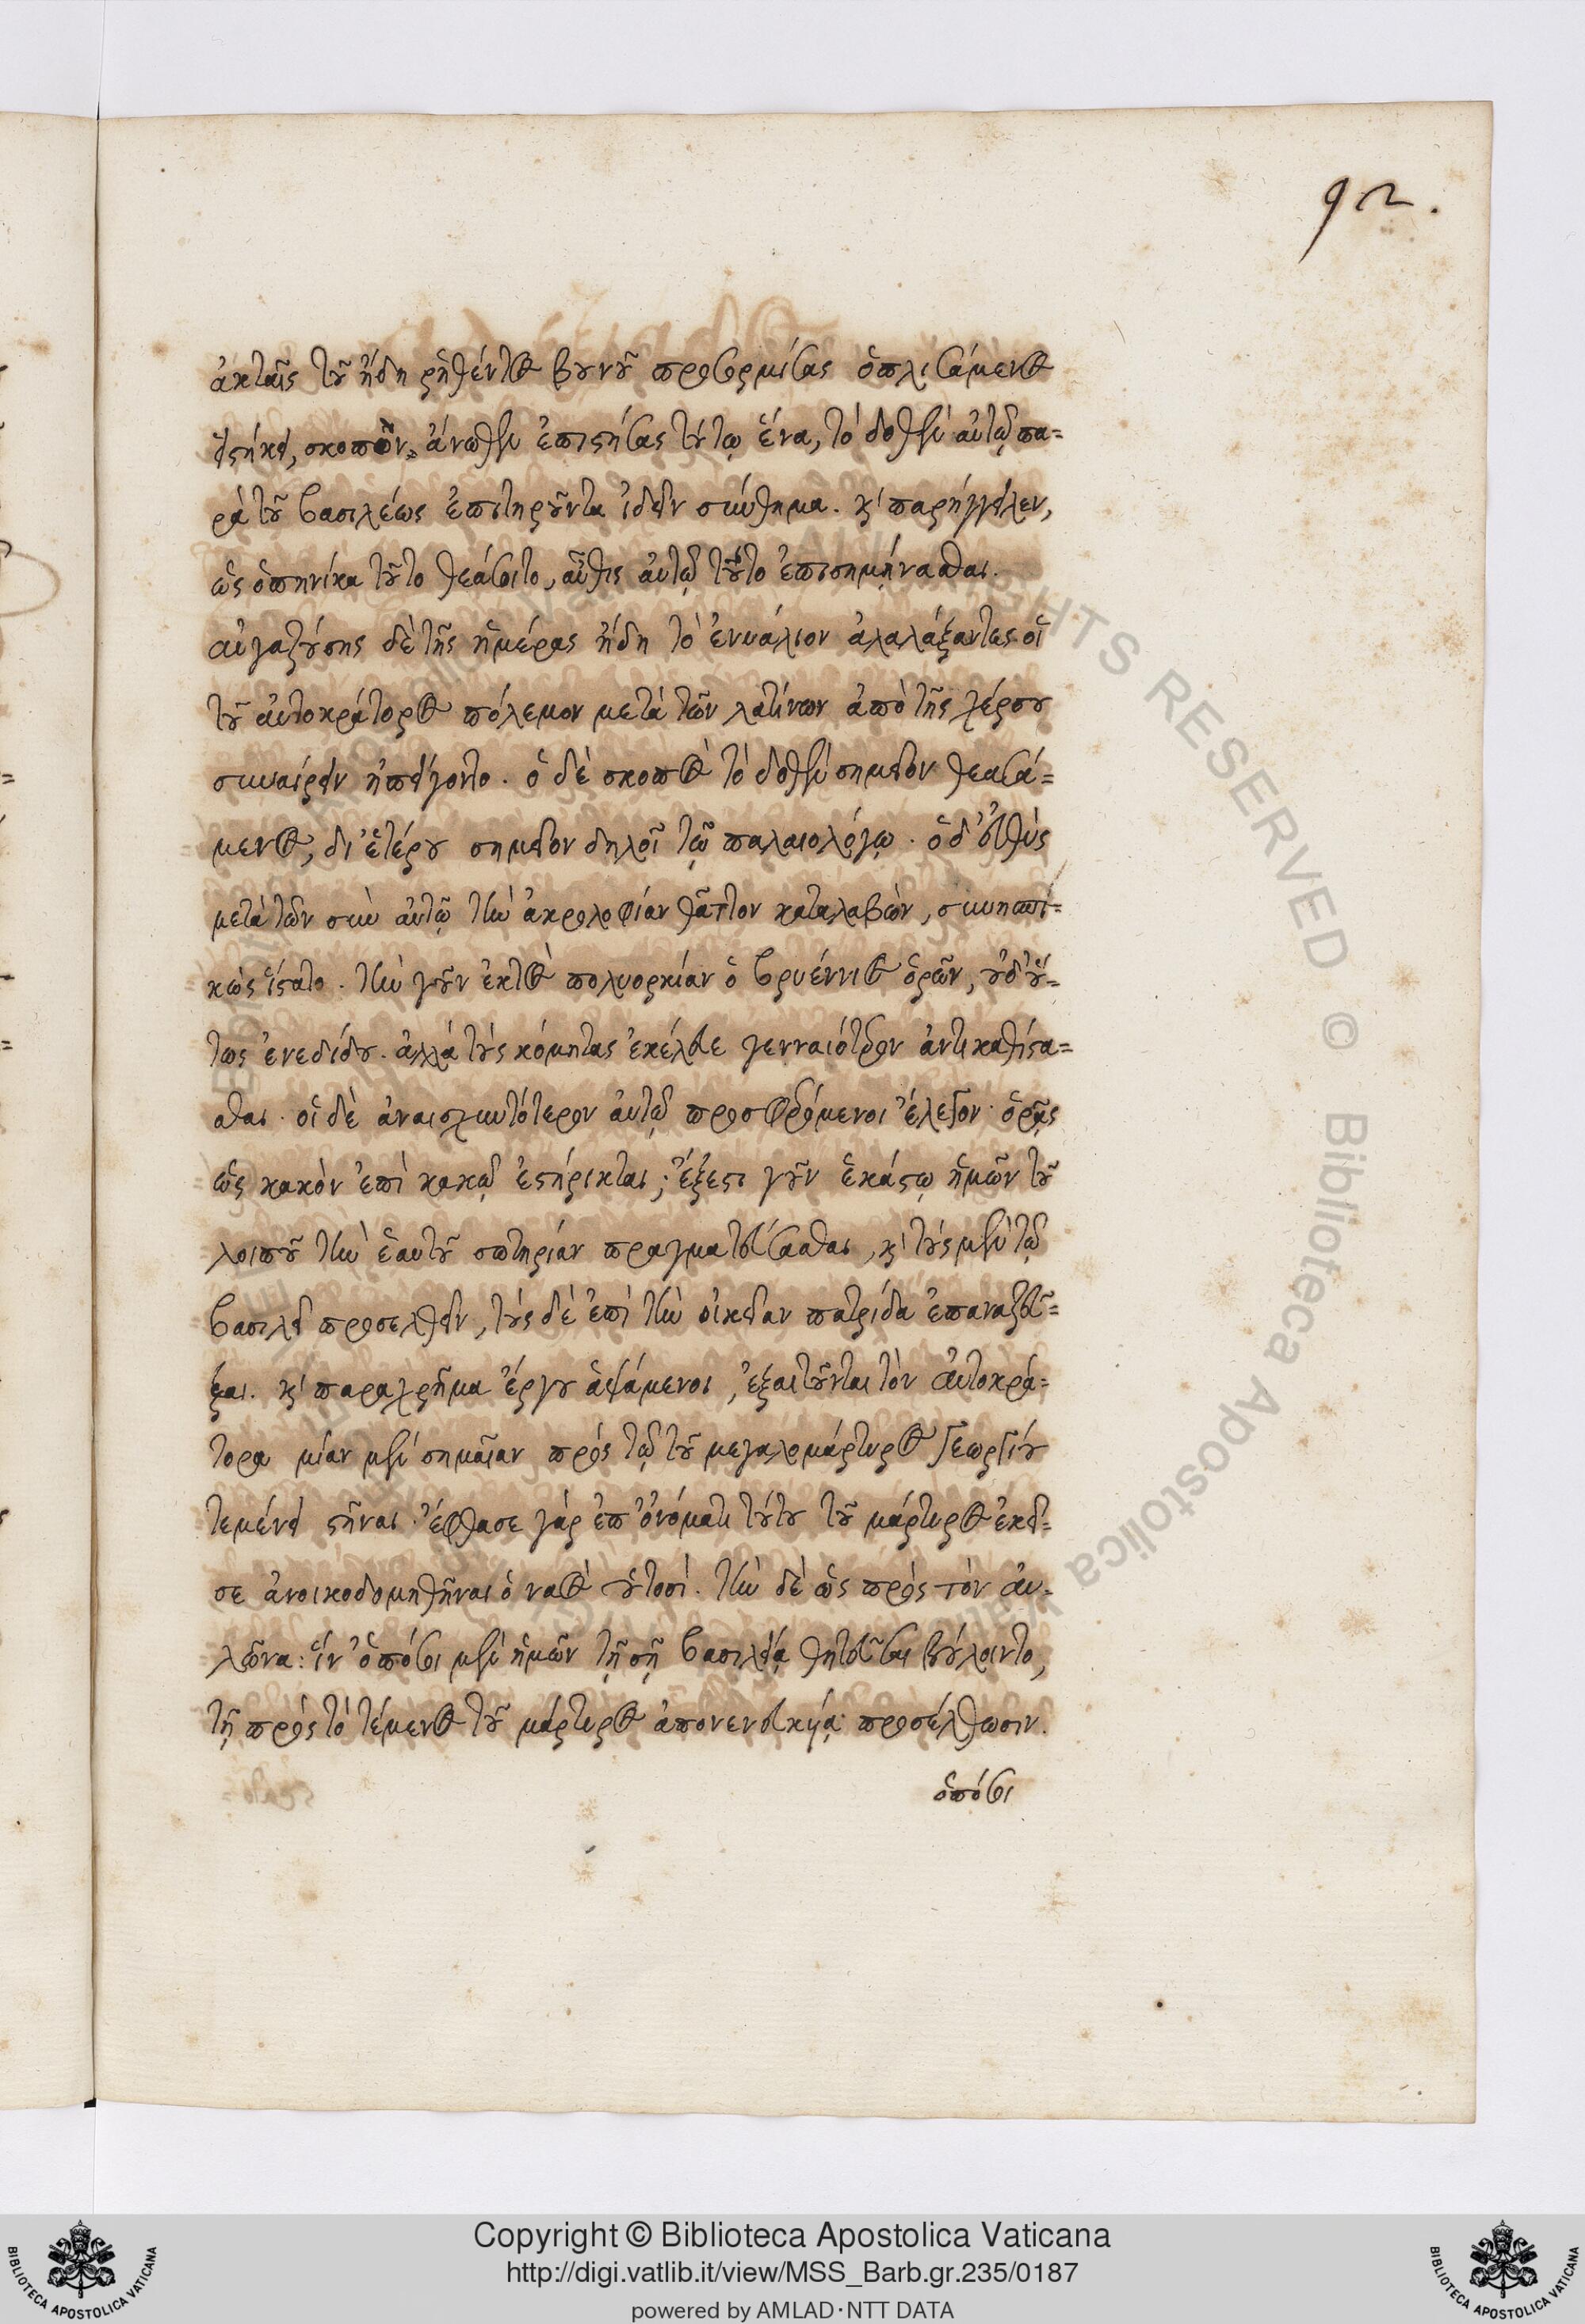 92.
ἀκταῖς τοῦ ἤδη ῥηθέντος βουνοῦ προσορμίσας ὁπλισάμενος
εἱστήκει, σκοπὸν ἄνωθεν ἐπιστήσας τούτῳ ἕνα, τὸ δοθὲν αὐτῷ πα=
ρὰ τοῦ βασιλέως ἐπιτηροῦντα ἰδεῖν σύνθημα. καὶ παρήγγειλεν,
ὡς ὁπηνίκα τοῦτο θεάσοιτο, αὖθις αὐτῷ τοῦτο ἐπισημήνασθαι.
αὐγαζούσης δὲ τῆς ἡμέρας ἤδη τὸ ἐνυάλιον ἀλαλάξαντες οἱ
τοῦ αὐτοκράτορος πόλεμον μετὰ τῶν λατίνων ἀπὸ τῆς χέρσου
συναίρειν ἠπείγοντο. ὁ δὲ σκοπὸς τὸ δοθὲν σημεῖον θεασά=
μενος, δι' ἑτέρου σημεῖον δηλοῖ τῷ παλαιολόγῳ. ὁ δ' εὐθὺς
μετὰ τῶν σὺν αὐτῷ τὴν ἀκρολοφίαν θᾶττον καταλαβὼν, συνησπι=
κὼς ἵστατο. τὴν γοῦν ἐκτὸς πολυορκίαν ὁ βρυέννιος ὁρῶν, οὐδ' οὕ=
τως ἐνεδίδου. ἀλλὰ τοὺς κόμητας ἐκέλευε γενναιότερον ἀντικαθίστα=
σθαι. οἱ δὲ ἀναισχυντότερον αὐτῷ προσφερόμενοι ἔλεγον· ὁρᾷς
ὡς κακὸν ἐπὶ κακῷ ἐστήρικται; ἔξεστι γοῦν ἑκάστῳ ἡμῶν τοῦ
λοιποῦ τὴν ἑαυτοῦ σωτηρίαν πραγματεύσασθαι, καὶ τοὺς μὲν τῷ
βασιλεῖ προσελθεῖν, τοὺς δὲ ἐπὶ τὴν οἰκείαν πατρίδα ἐπαναζεῦ=
ξαι. καὶ παραχρῆμα ἔργου ἁψάμενοι, ἐξαιτοῦνται τὸν αὐτοκρά=
τορα μίαν μὲν σημαίαν πρὸς τῷ τοῦ μεγαλομάρτυρος Γεωργίου
τεμένει στῆναι. ἔφθασε γὰρ ἐπ' ὀνόματι τούτου τοῦ μάρτυρος ἐκεῖ=
σε ἀνοικοδομηθῆναι ὁ ναὸς οὑτοσί. τὴν δὲ ὡς πρὸς τὸν αὐ=
λῶνα: ἵν' ὁπόσοι μὲν ἡμῶν τῇ σῇ βασιλείᾳ θητεῦσαι βούλοιντο,
τῇ πρὸς τὸ τέμενος τοῦ μάρτυρος ἀπονενευκυίᾳ προσέλθωσιν.
ὁπόσοι
Copyright © Biblioteca Apostolica Vaticana
http://digi.vatlib.it/view/MSS_Barb.gr.235/0187
powered by AMLAD·NTT DATA